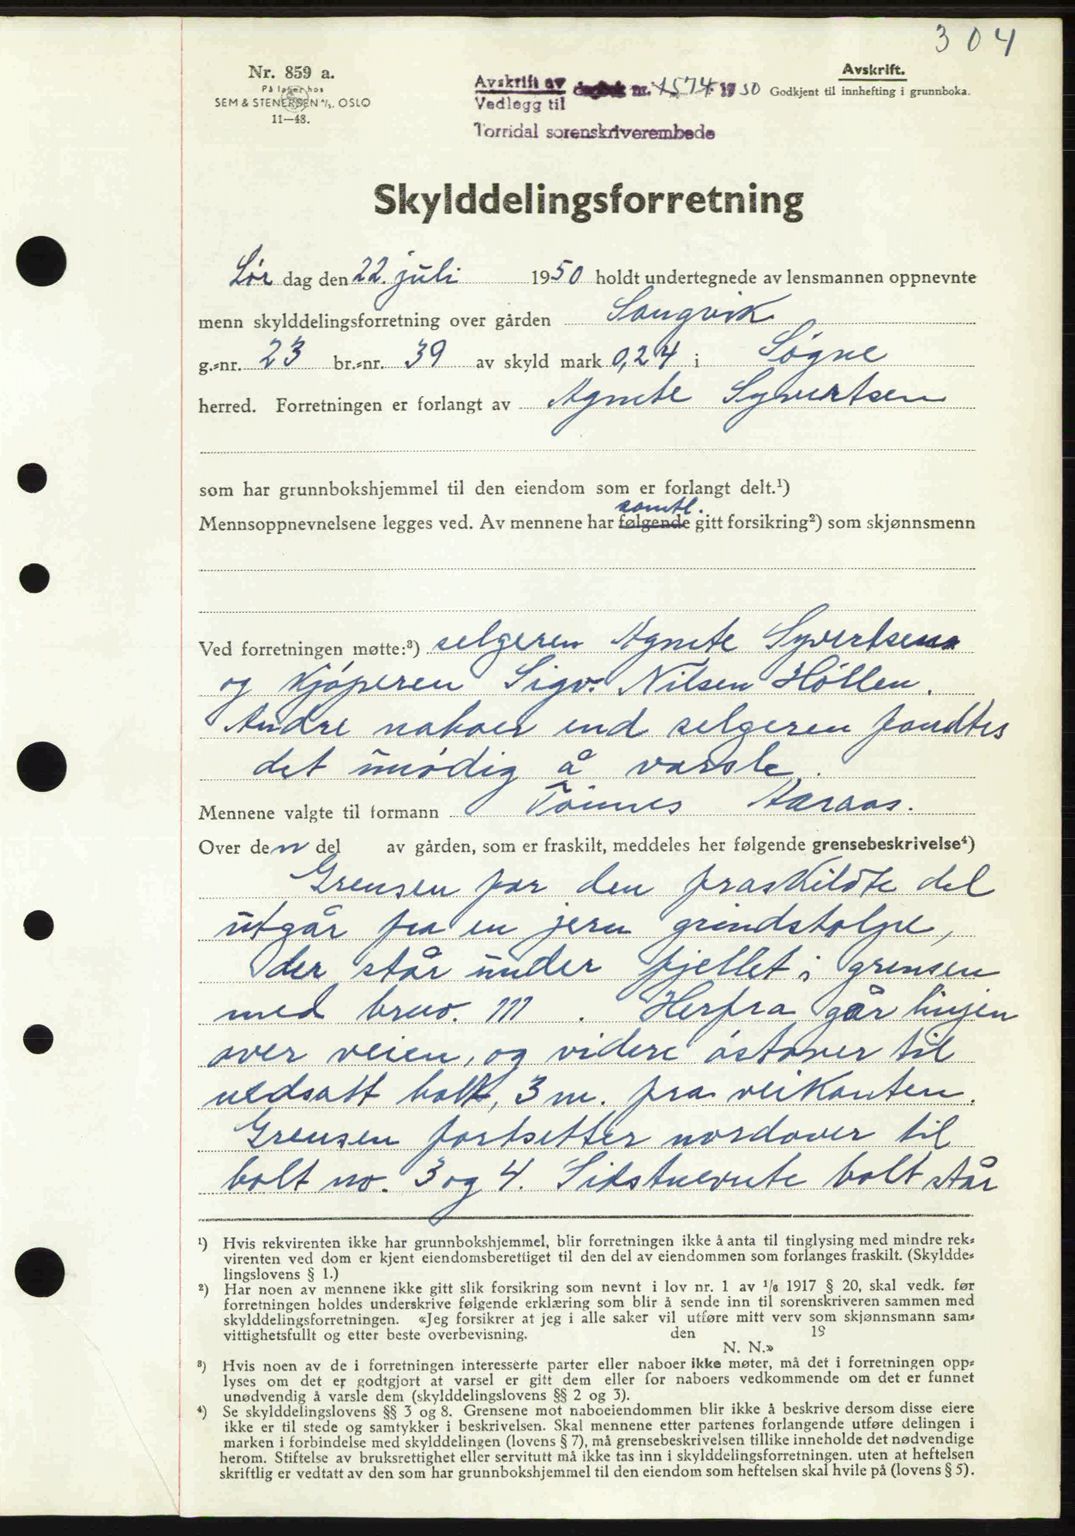 304
Nr. 859 a.
På lager hos
SEM & STENERSEN A/S. OSLO
11—48.
Avskrift av dagbok nr. 1574 1950
Vedlegg til
Torridal sorenskriverembede
Avskrift.
Godkjent til innhefting i grunnboka.
Skylddelingsforretning
Lør dag den 22. juli 1950 holdt undertegnede av lensmannen oppnevnte
menn skylddelingsforretning over gården Sangvik
g.-nr. 23 br.-nr. 39 av skyld mark 0,24 i Søgne
herred. Forretningen er forlangt av Agnete Syvertsen
som har grunnbokshjemmel til den eiendom som er forlangt delt.¹)
samtl.
Mennsoppnevnelsene legges ved. Av mennene har følgende gitt forsikring²) som skjønnsmenn
Ved forretningen møtte:³) selgeren Agnete Syvertsen
og kjøperen Sigv. Nilsen Høllen.
Andre naboer end selgeren fandtes
det unødig å varsle.
Mennene valgte til formann Tønnes Aaraas.
Over den del av gården, som er fraskilt, meddeles her følgende grensebeskrivelse⁴)
Grensen for den fraskildte del
utgår fra en jern grindstolpe,
der står under fjellet i grensen
med brno. 111. Herfra går linjen
over veien, og videre østover til
nedsatt bolt, 3 m. fra veikanten.
Grensen fortsetter nordover til
bolt no. 3 og 4. Sidstnevnte bolt står
¹) Hvis rekvirenten ikke har grunnbokshjemmel, blir forretningen ikke å anta til tinglysing med mindre rek-
virenten ved dom er kjent eiendomsberettiget til den del av eiendommen som forlanges fraskilt. (Skyldde-
lingslovens § 1.)
²) Har noen av mennene ikke gitt slik forsikring som nevnt i lov nr. 1 av 1/6 1917 § 20, skal vedk. før
forretningen holdes underskrive følgende erklæring som blir å sende inn til sorenskriveren sammen med
skylddelingsforretningen. «Jeg forsikrer at jeg i alle saker vil utføre mitt verv som skjønnsmann sam-
vittighetsfullt og etter beste overbevisning. den 19
N. N.»
³) Hvis noen av de i forretningen interesserte parter eller naboer ikke møter, må det i forretningen opp-
lyses om det er godtgjort at varsel er gitt dem eller for naboers vedkommende om det er funnet
unødvendig å varsle dem (skylddelingslovens §§ 2 og 3).
⁴) Se skylddelingslovens §§ 3 og 8. Grensene mot naboeiendommen blir ikke å beskrive dersom disse eiere
ikke er til stede og samtykker i beskrivelsen. Skal mennene etter partenes forlangende utføre delingen i
marken i forbindelse med skylddelingen (lovens § 7), må grensebeskrivelsen tillike inneholde det nødvendige
herom. Stiftelse av bruksrettighet eller servitutt må ikke tas inn i skylddelingsforretningen. uten at heftelsen
skriftlig er vedtatt av den som har grunnbokshjemmel til den eiendom som heftelsen skal hvile på (lovens § 5).